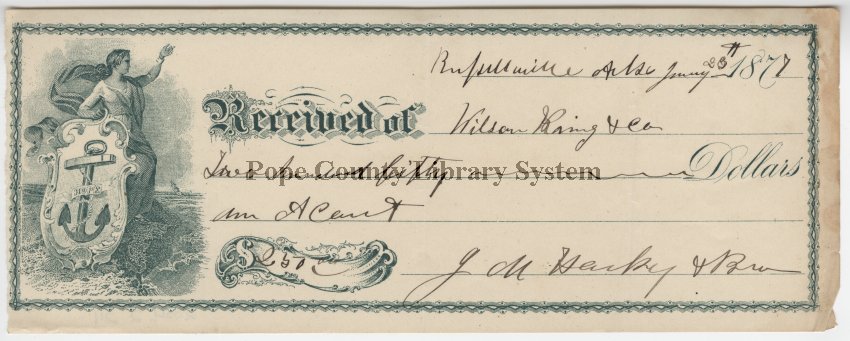 Russellville Arks Jany 23th 1877
Received of Wilson King & Co
Two hundred fifty Dollars
on Acount
$250 J M Harkey & Bro
HOPE
Pope County Library System